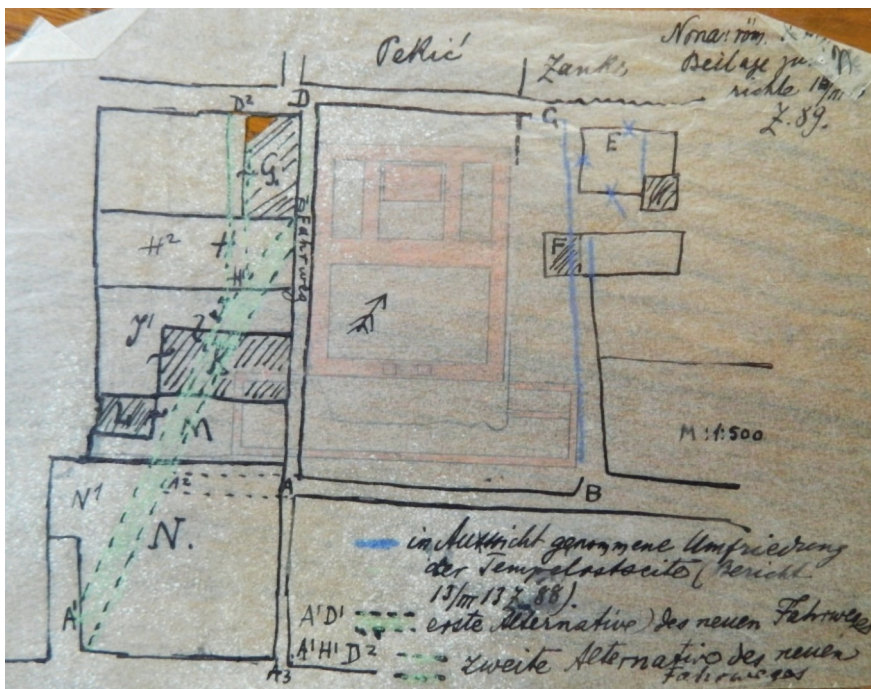 Pekić
Zanki
Nona: röm.
Beilage zu
richte 18/III
Z. 89.
D²
D
C
E
G
F
Fahrweg
H²
H
H¹
J¹
J
K
L
M
M:1:500
N¹
A²
A
B
N.
A¹
A3
in Aussicht genommene Umfriedung
der Tempelostseite (Bericht
13/III 13 Z. 88).
A¹D¹ erste Alternative) des neuen Fahrweges
A¹H¹D² zweite Alternative des neuen
Fahrweges